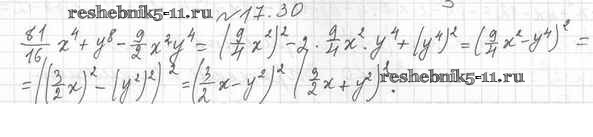 reshebnik5-11.ru №17.30
81/16 x⁴ + y⁸ - 9/2 x²y⁴ = (9/4 x²)² - 2 · 9/4 x² · y⁴ + (y⁴)² = (9/4 x² - y⁴)² =
= ((3/2 x)² - (y²)²)² = (3/2 x - y²)² (3/2 x + y²)².
reshebnik5-11.ru